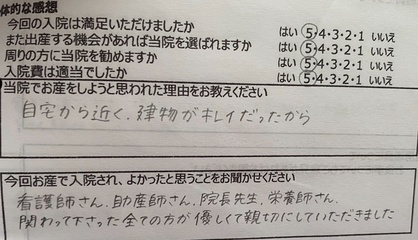 体的な感想
今回の入院は満足いただけましたか はい 5・4・3・2・1 いいえ
また出産する機会があれば当院を選ばれますか はい 5・4・3・2・1 いいえ
周りの方に当院を勧めますか はい 5・4・3・2・1 いいえ
入院費は適当でしたか はい 5・4・3・2・1 いいえ
当院でお産をしようと思われた理由をお教えください
自宅から近く、建物がキレイだったから
今回お産で入院され、よかったと思うことをお聞かせください
看護師さん、助産師さん、院長先生、栄養師さん、
関わって下さった全ての方が優しくて親切にしていただきました